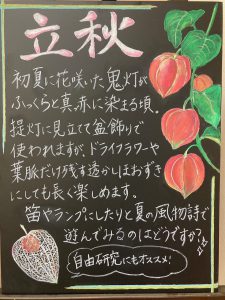 立秋
初夏に花咲いた鬼灯が
ふっくらと真赤に染まる頃。
提灯に見立て盆飾りで
使われますが、ドライフラワーや
葉脈だけ残す透かしほおずき
にしても長く楽しめます。
笛やランプにしたりと夏の風物詩で
遊んでみるのはどうですか?
自由研究にもオススメ!